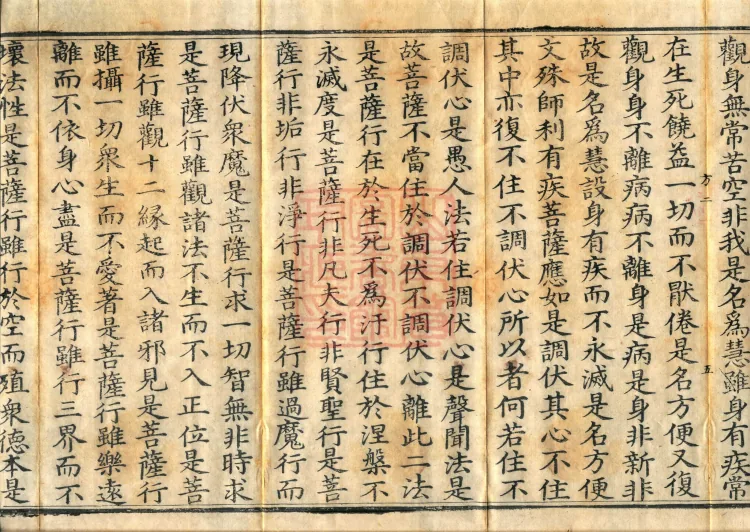 觀身無常苦空非我是名爲慧雖身有疾常
在生死饒益一切而不猒倦是名方便又復
觀身身不離病病不離身是病是身非新非
故是名爲慧設身有疾而不永滅是名方便
文殊師利有疾菩薩應如是調伏其心不住
其中亦復不住不調伏心所以者何若住不
調伏心是愚人法若住調伏心是聲聞法是
故菩薩不當住於調伏不調伏心離此二法
是菩薩行在於生死不爲汙行住於涅槃不
永滅度是菩薩行非凡夫行非賢聖行是菩
薩行非垢行非淨行是菩薩行雖過魔行而
現降伏衆魔是菩薩行求一切智無非時求
是菩薩行雖觀諸法不生而不入正位是菩
薩行雖觀十二緣起而入諸邪見是菩薩行
雖攝一切衆生而不愛著是菩薩行雖樂遠
離而不依身心盡是菩薩行雖行三界而不
壞法性是菩薩行雖行於空而殖衆德本是
方二
五